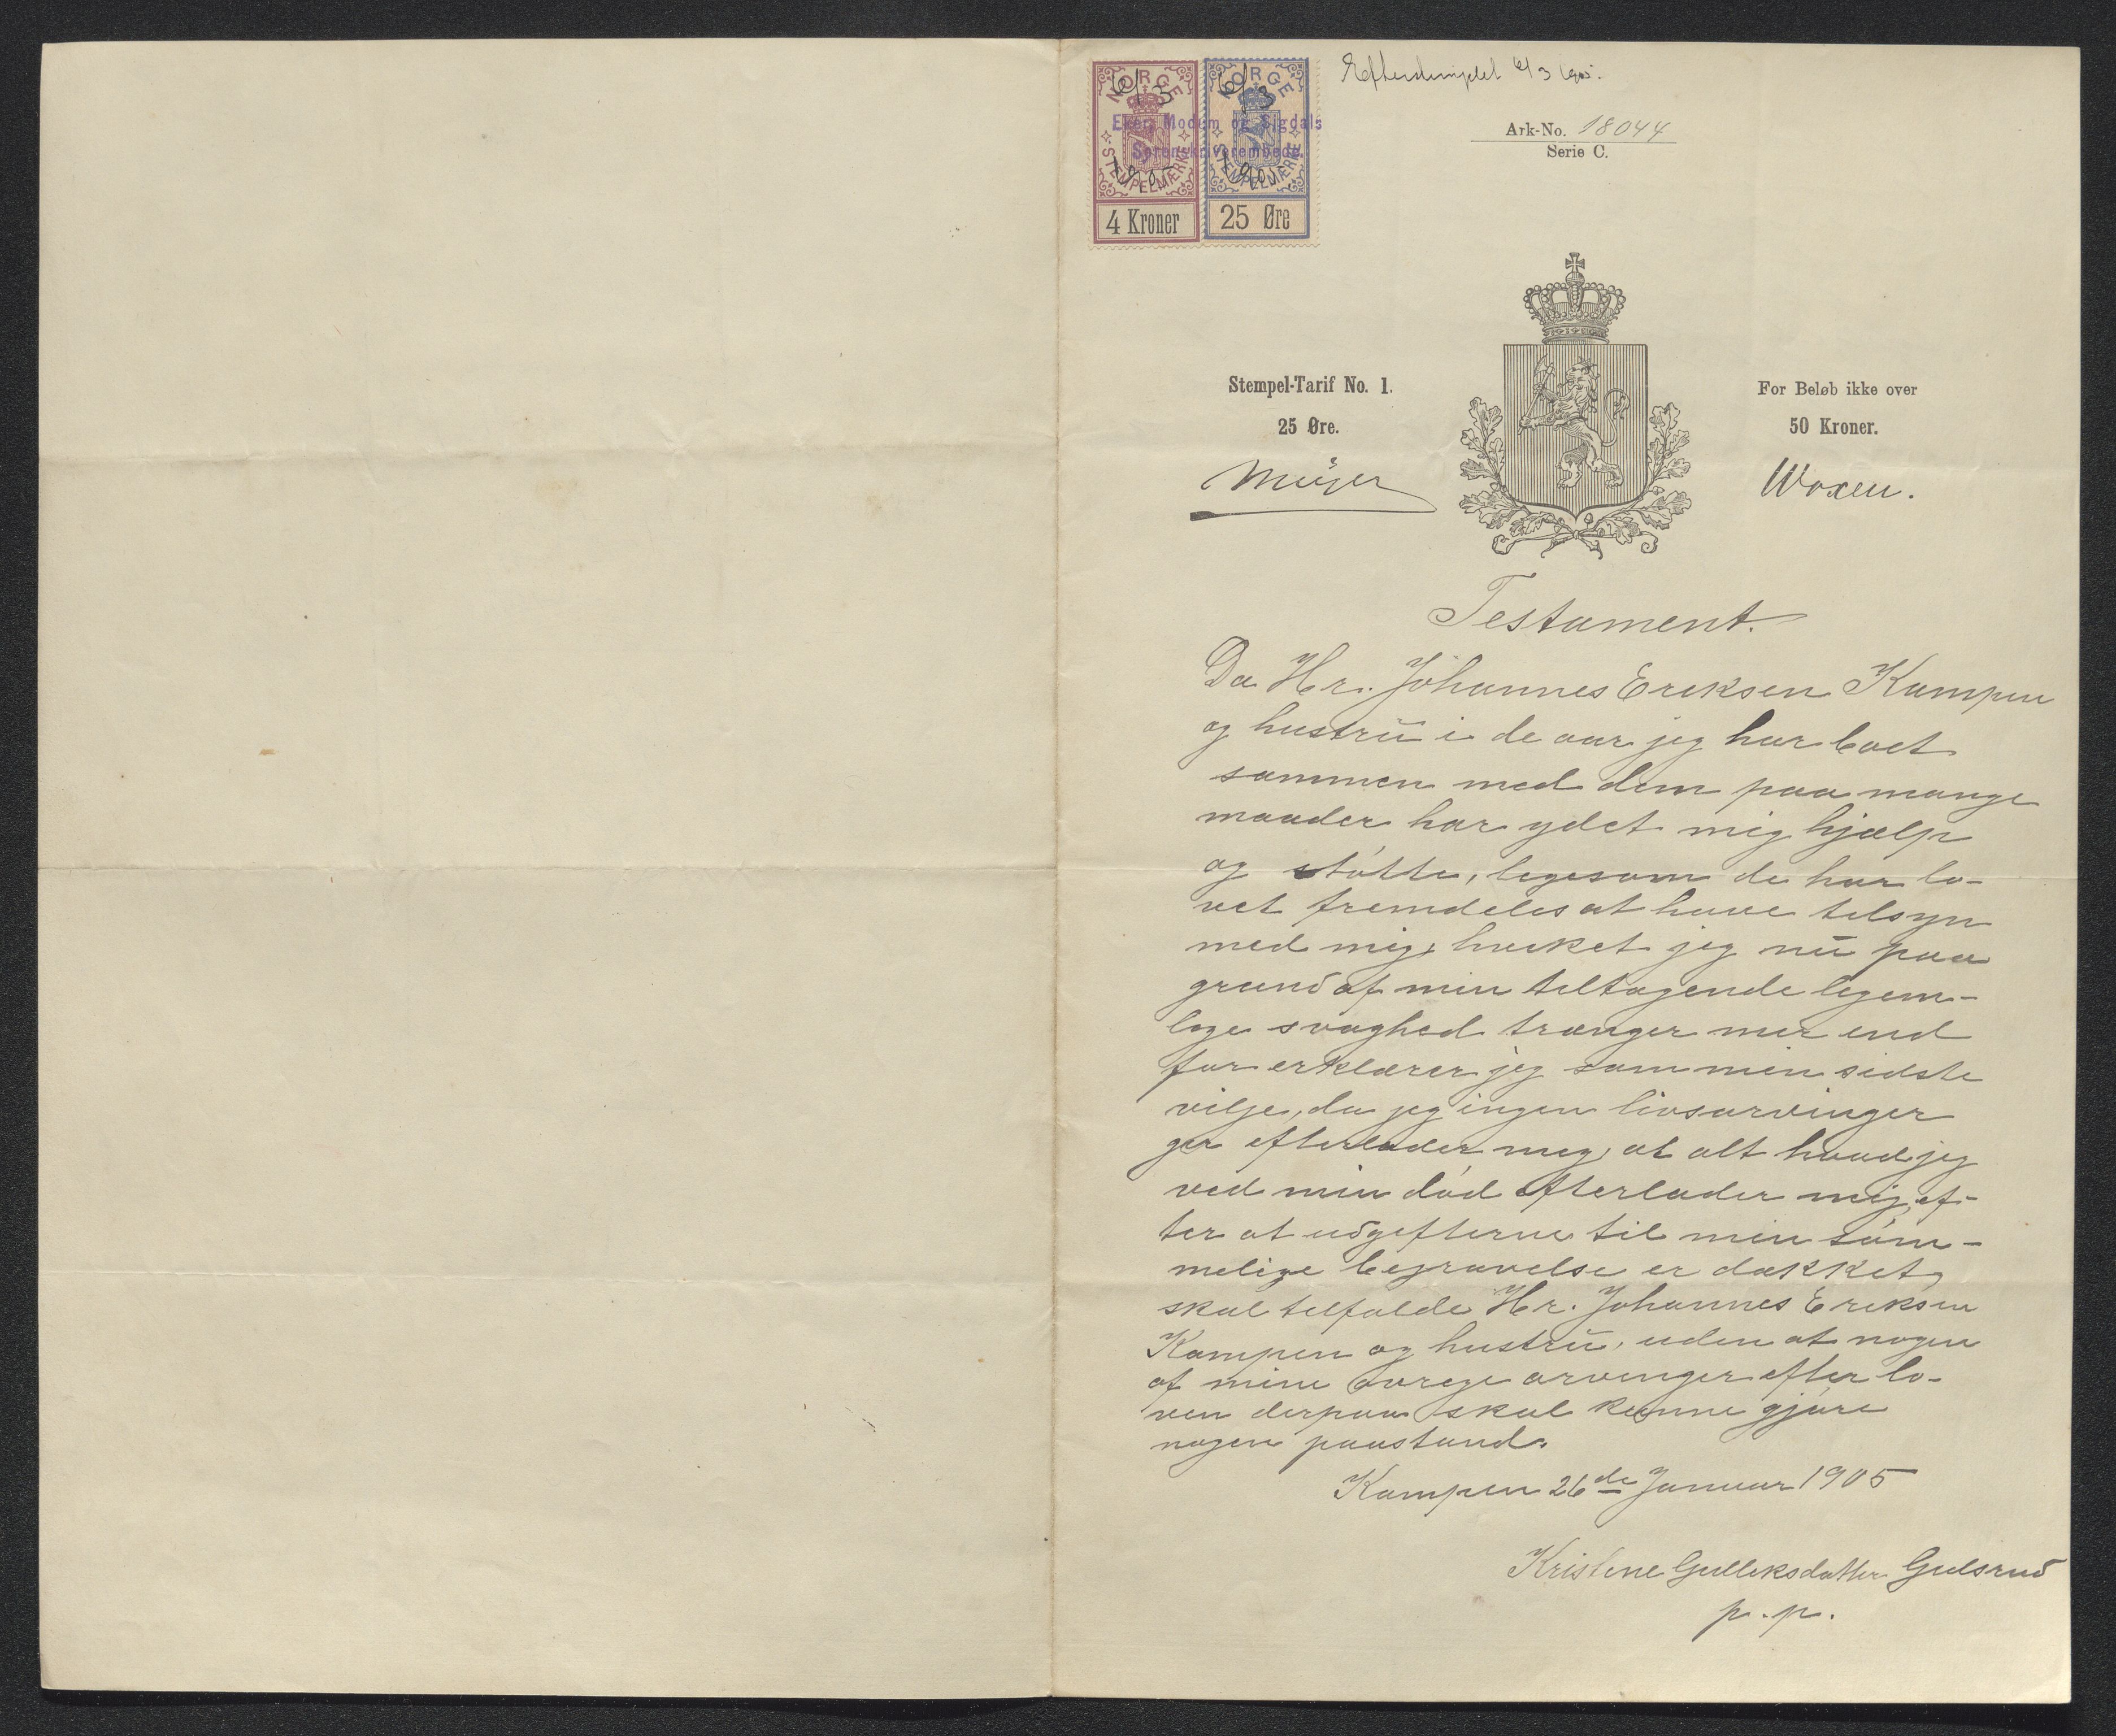 Efterstemplet 6/3 1905.
NORGE
6/3
1905
STEMPELMÆRKE
4 Kroner
NORGE
6/3
1905
STEMPELMÆRKE
25 Øre
Eker, Modum og Sigdals
Sorenskriverembede.
Ark-No. 18044
Serie C.
Stempel-Tarif No. 1.
25 Øre.
For Beløb ikke over
50 Kroner.
Meijer
Woxen.
Testament.
Da Hr. Johannes Eriksen Kampen
og hustrú i de aar jeg har boet
sammen med dem paa mange
maader har ydet mig hjælp
og støtte, ligesom de har lo-
vet fremdeles at have tilsyn
med mig, hvilket jeg nú paa
grund af min tiltagende legem-
lige svaghed trænger mer end
før erklærer jeg som min sidste
vilje, da jeg ingen livsarvinger
ger efterlader mig, at alt hvad jeg
ved min død efterlader mig, ef-
ter at udgifterne til min søm-
melige begravelse er dækket,
skal tilfalde Hr. Johannes Eriksen
Kampen og hustrú, uden at nogen
af mine øvrige arvinger efter lo-
ven derpaa skal kunne gjøre
nogen paastand.
Kampen 26de Januar 1905
Kristine Gulleksdatter Gulsrud
p.p.